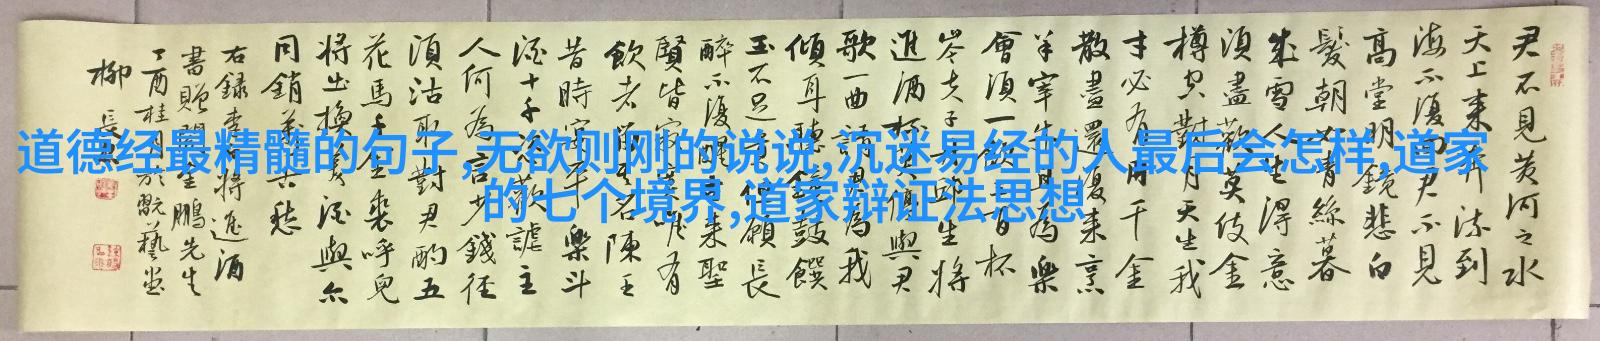 道德经最精髓的句子,无欲则刚的说说,沉迷易经的人最后会怎样,道家
的七个境界,道家辩证法思想
君不見黃河之水
天上來奔流到
海不復回君不見
高堂明鏡悲白
髮朝如青絲暮
成雪人生得意
須盡歡莫使金
樽空對月天生我
才必有用千金
散盡還復來烹
羊宰牛且為樂
會須一飲三百杯
岑夫子丹邱生將
進酒杯莫停與君
歌一曲請君為我
傾耳聽鐘鼓饌
玉不足貴但願長
醉不復醒古來聖
賢皆寂寞唯有
飲者留其名陳王
昔時宴平樂斗
酒十千恣歡謔主
人何為言少錢徑
須沽取對君酌五
花馬千金裘呼兒
將出換美酒與尔
同銷萬古愁
右錄李白將進酒
書贈鵬先生
丁酉桂月於翫藝堂
柳長